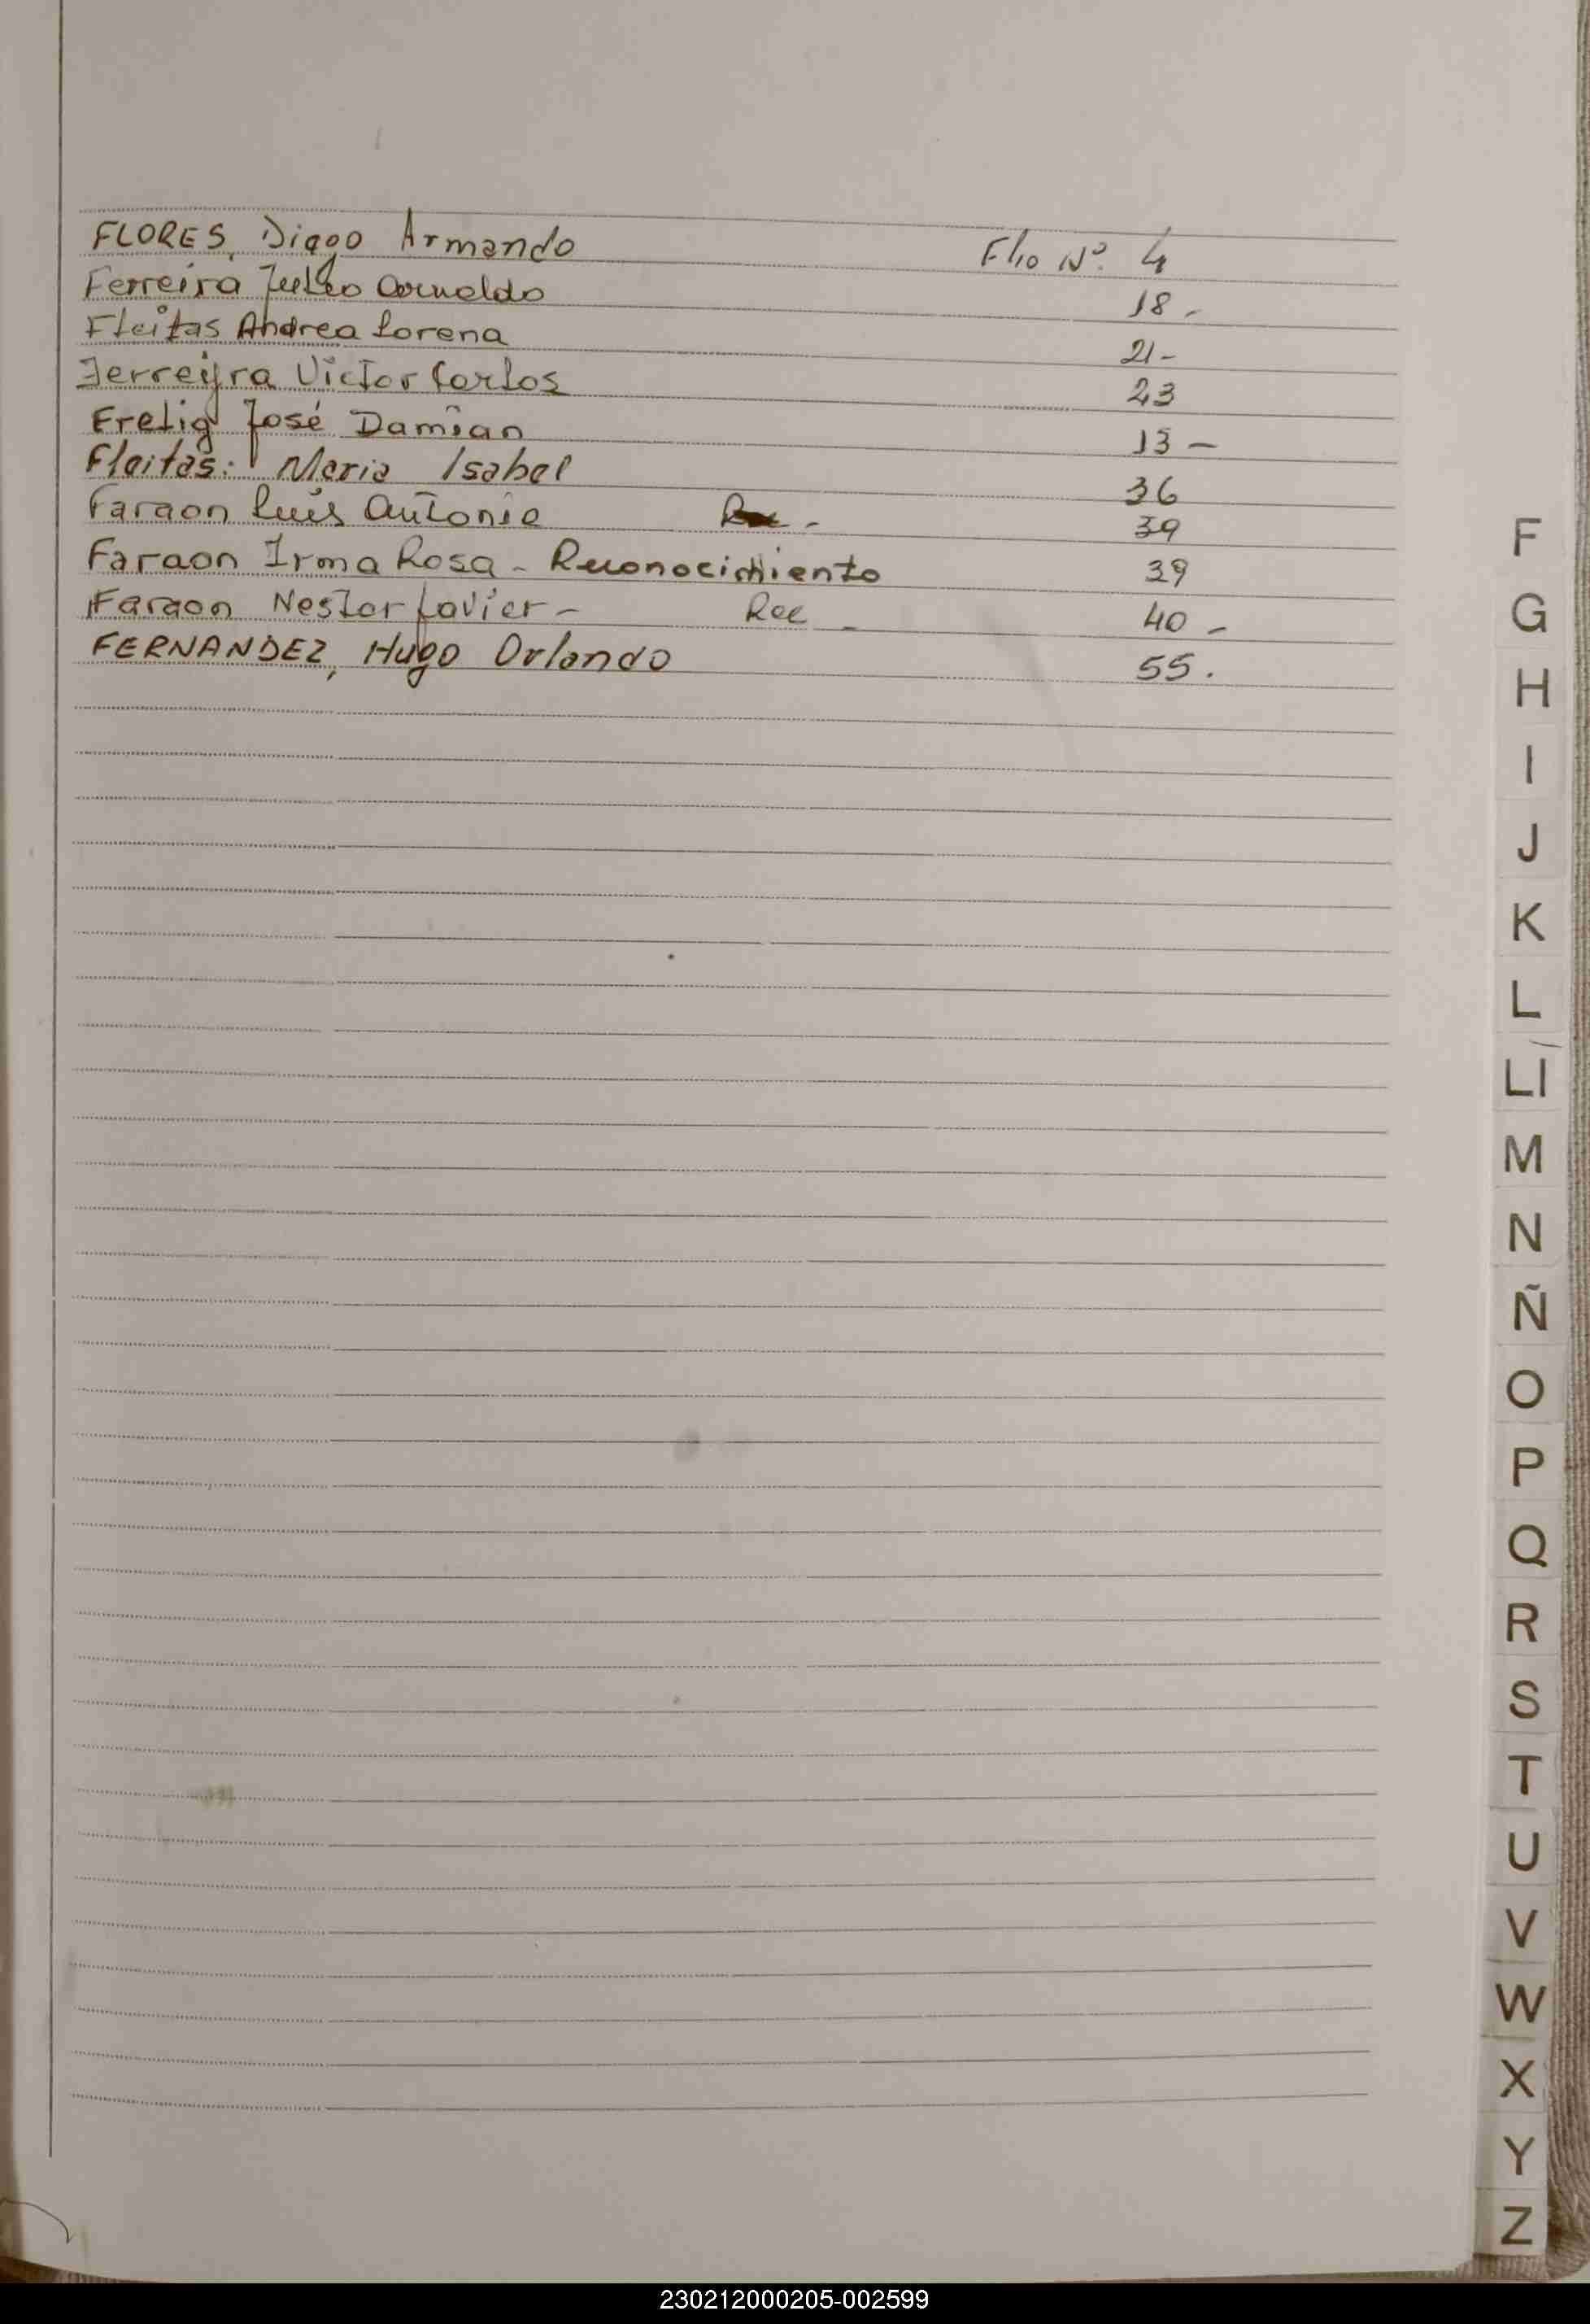 FLORES, Diego Armando Flio Nº. 4
Ferreira Julio Arnaldo 18 -
Fleitas Andrea Lorena 21 -
Ferreyra Victor Carlos 23
Frelig José Damian 13 -
Fleitas: Maria Isabel 36
Faraon Luis Antonio - 39
Faraon Irma Rosa - Reconocimiento 39
Faraon Nestor Javier - Rec - 40 -
FERNANDEZ, Hugo Orlando 55.
F
G
H
I
J
K
L
Ll
M
N
Ñ
O
P
Q
R
S
T
U
V
W
X
Y
Z
230212000205-002599